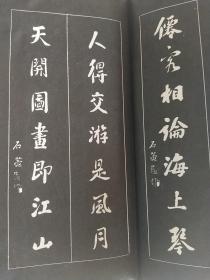 僊客相論海上琴
石菴
人得交游是風月
天開圖畫即江山
石菴